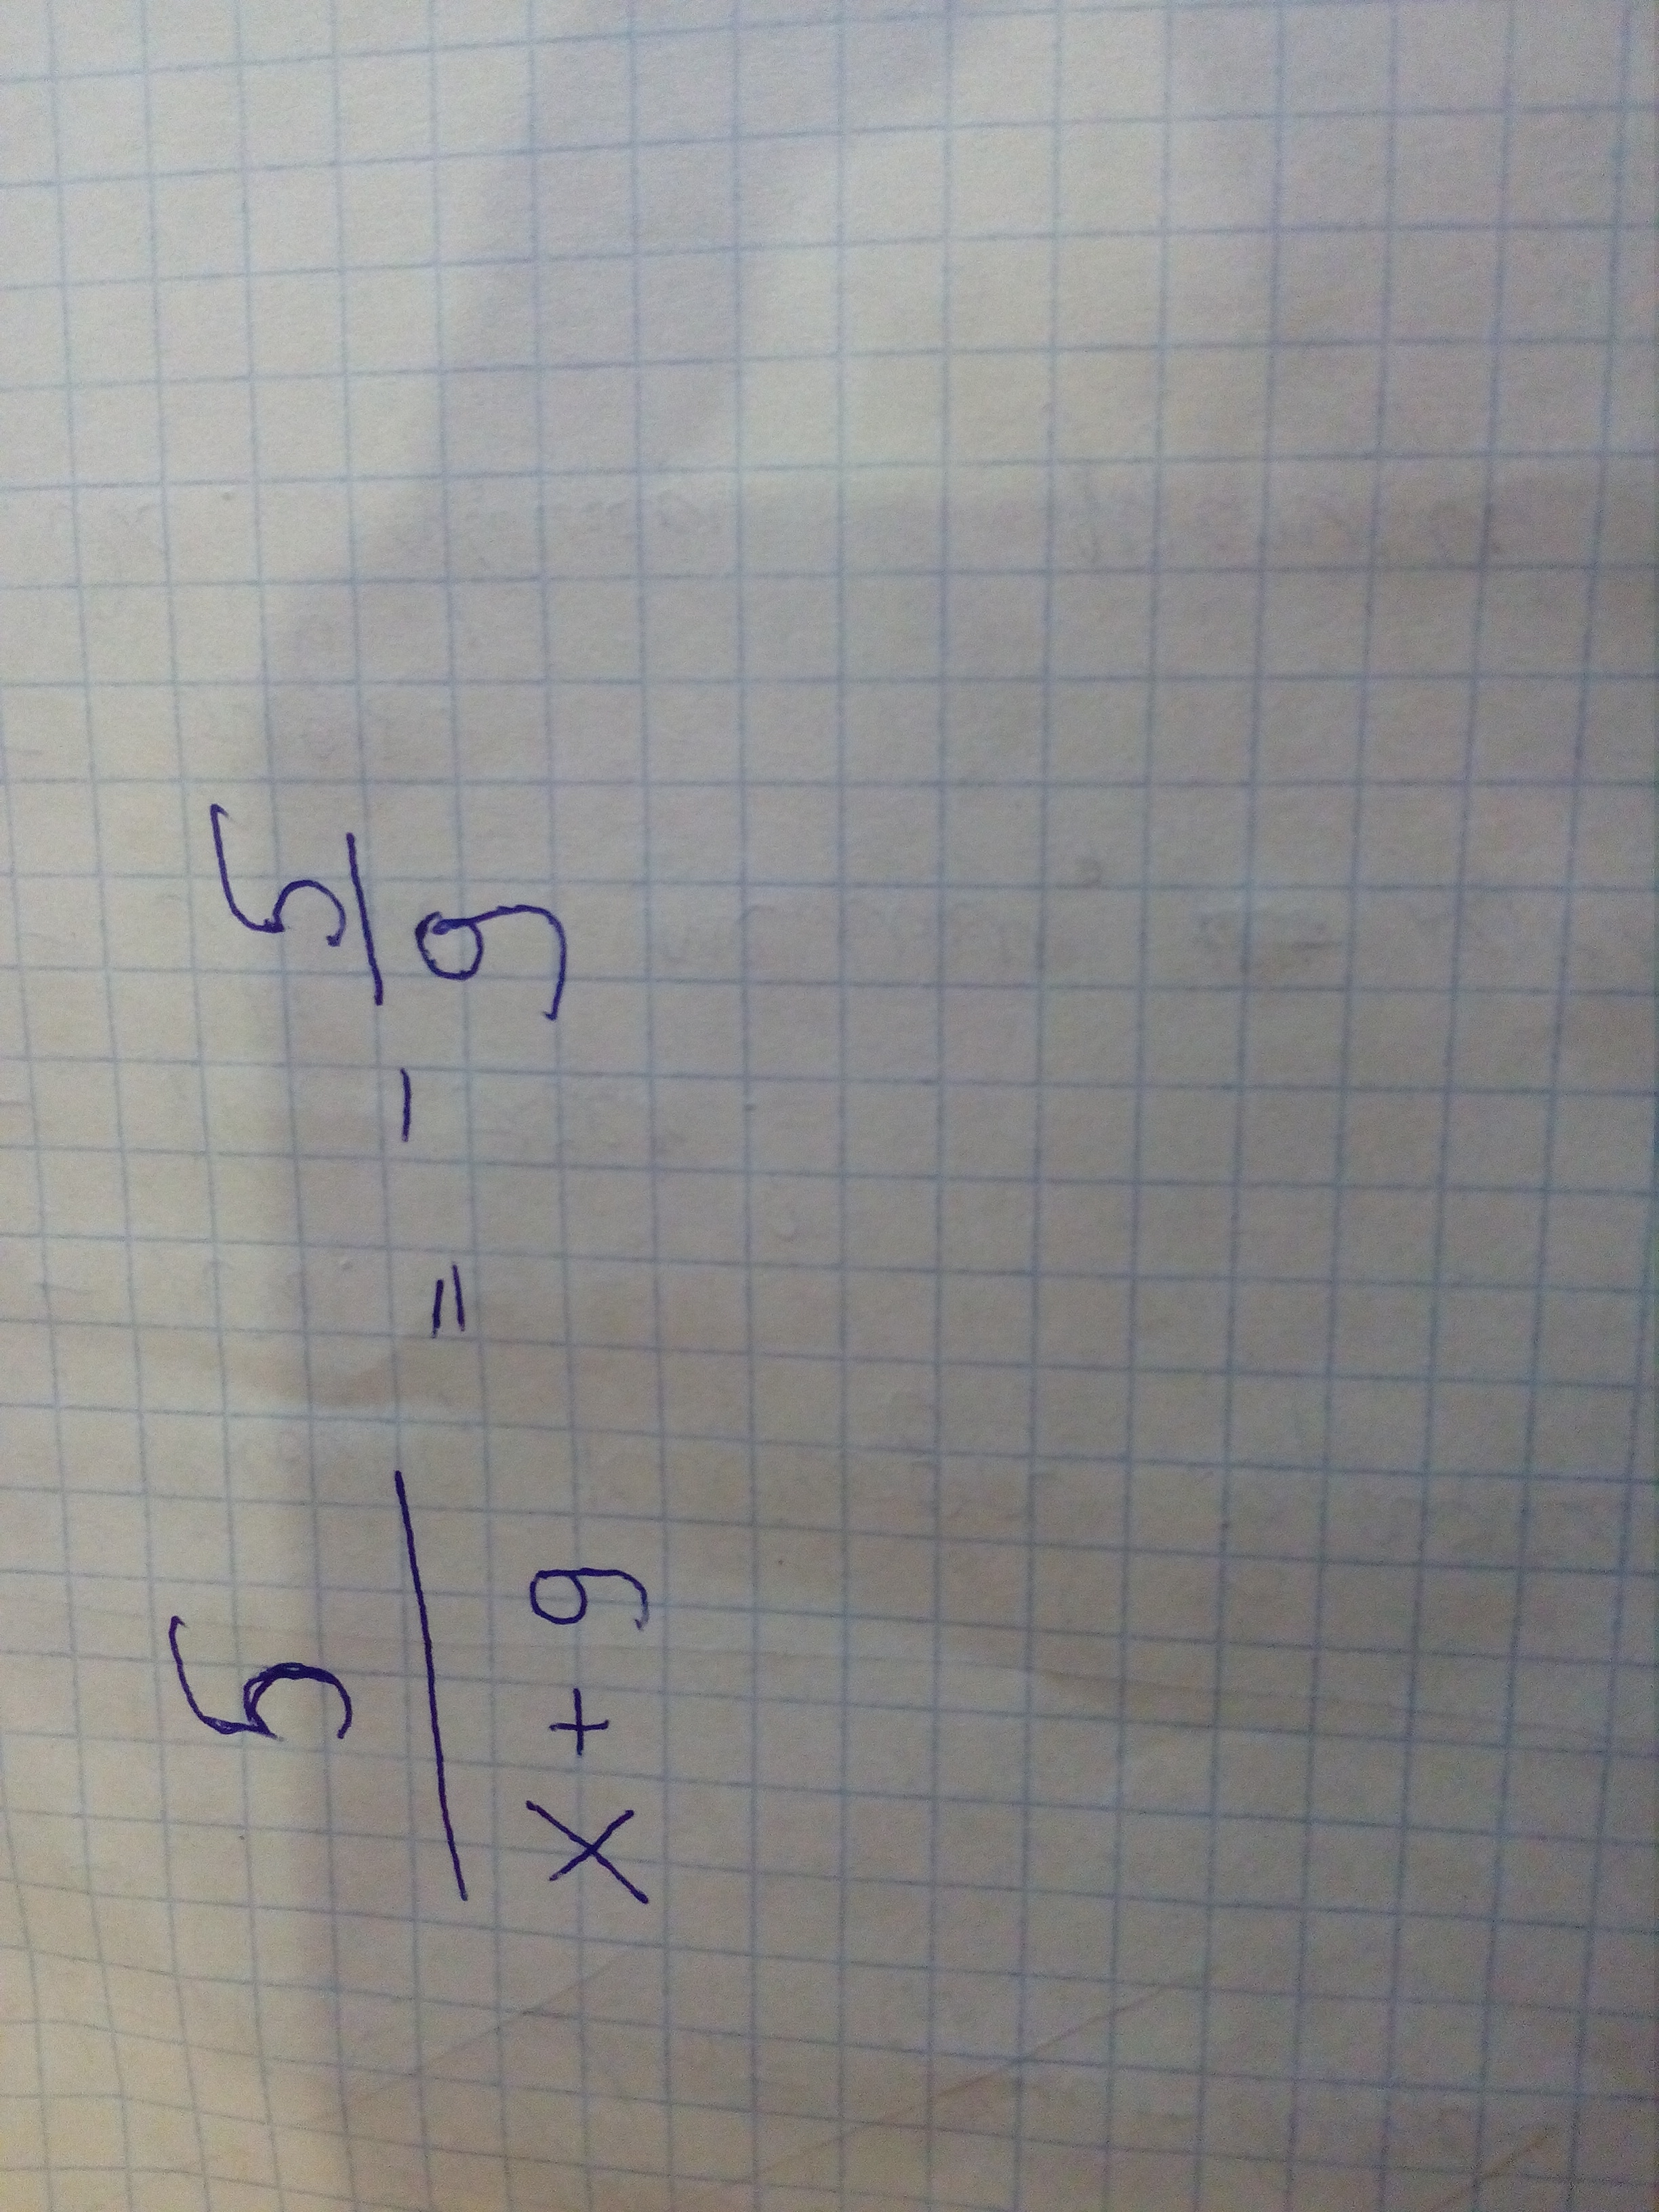 5/(x + 9) = - 5/9